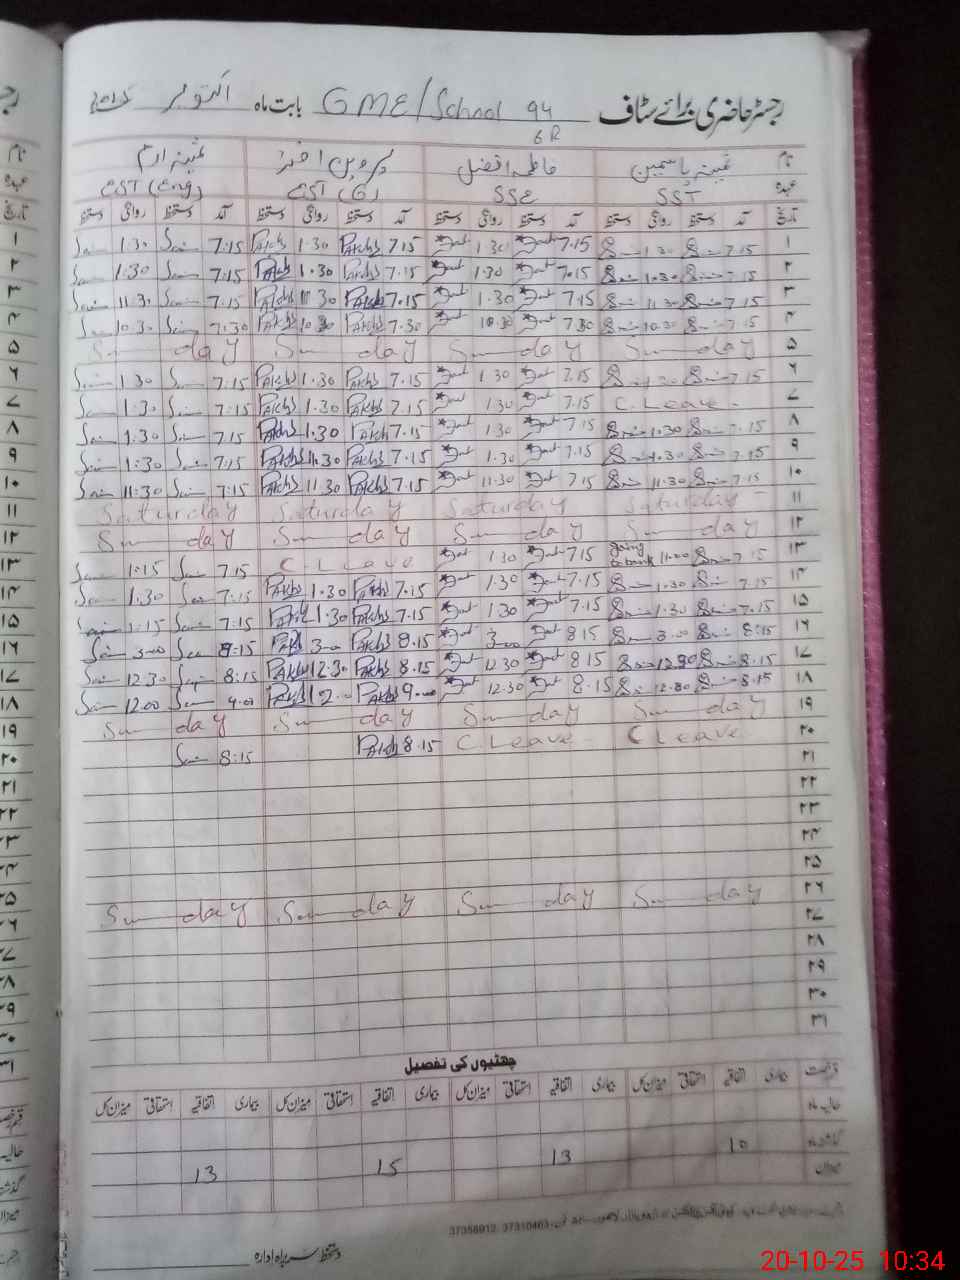 رجسٹر حاضری برائے سٹاف GME/School 94 بابت ماہ اکتوبر 2025
6R
نام ثمینہ یاسمین فاطمہ افضل پروین اختر ثمینہ ارم
عہدہ SST SSE EST (G) EST (Eng)
تاریخ آمد دستخط روانگی دستخط آمد دستخط روانگی دستخط آمد دستخط روانگی دستخط آمد دستخط روانگی دستخط
۱ 7.15 1.30 7.15 1.30 7.15 1.30 7:15 1:30
۲ 7.15 1.30 7.15 1.30 7.15 1.30 7:15 1:30
۳ 7.15 11.30 7.15 1.30 7.15 11 30 7:15 11:30
۴ 7.15 10.30 7.30 10.30 7.30 10.30 7:30 10.30
۵ Sunday Sunday Sunday Sunday
۶ 7.15 1.30 7.15 1.30 7.15 1.30 7:15 1:30
۷ C.Leave 7.15 1.30 7.15 1.30 7:15 1:30
۸ 7.15 1.30 7.15 1.30 7.15 1.30 7.15 1:30
۹ 7.15 1.30 7.15 1.30 7.15 11.30 7:15 1:30
۱۰ 7.15 11.30 7.15 11.30 7.15 11.30 7:15 11:30
۱۱ Saturday Saturday Saturday Saturday
۱۲ Sunday Sunday Sunday Sunday
۱۳ 7.15 11.00 going to bank 7.15 1.30 C Leave 7.15 1:15
۱۴ 7.15 1.30 7.15 1.30 7.15 1.30 7:15 1:30
۱۵ 7.15 1.30 7.15 1.30 7.15 1.30 7:15 1:15
۱۶ 8:15 3.00 8 15 3.00 8.15 3.00 8:15 3.00
۱۷ 8.15 12.30 8 15 12 30 8.15 12.30 8:15 12.30
۱۸ 8.15 12.30 8.15 12.30 9.00 12.00 9.00 12.00
۱۹ Sunday Sunday Sunday Sunday
۲۰ C Leave C.Leave 8.15 8:15
۲۱
۲۲
۲۳
۲۴
۲۵
۲۶ Sunday Sunday Sunday Sunday
۲۷
۲۸
۲۹
۳۰
۳۱
چھٹیوں کی تفصیل
رخصت بیماری اتفاقیہ استحقاقی میزان کل بیماری اتفاقیہ استحقاقی میزان کل بیماری اتفاقیہ استحقاقی میزان کل بیماری اتفاقیہ استحقاقی میزان کل
حالیہ ماہ
گذشتہ ماہ 10 13 15 13
میزان
37310463 37356912
دستخط سربراہ ادارہ
20-10-25 10:34